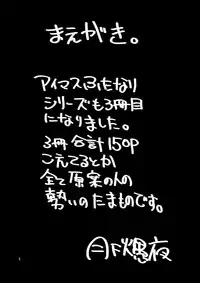 まえがき。
アイマスふたなり
シリーズも3冊目
になりました。
3冊合計150P
こえてるとか
全て原案の人の
勢いのたまものです。
月下爆夜